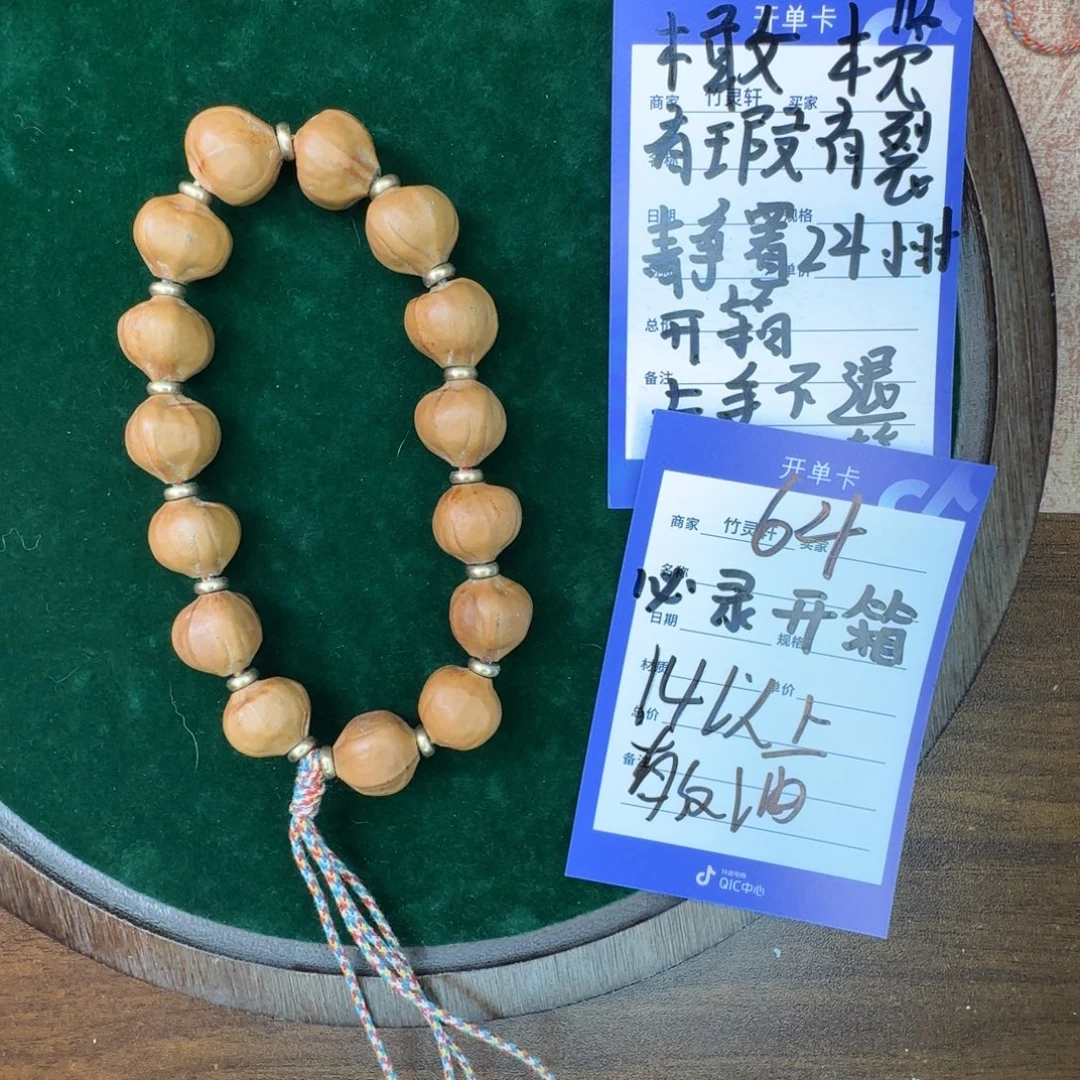 开单卡
橄榄
商家 竹灵轩 买家
有瑕有裂
日期 规格
静置24小时
总价
开箱
备注
上手不退
开单卡
64
商家 竹灵轩 买家
名称
必录开箱
日期 规格
材质 单价
14以上
总价
备注
有皮油
抖音电商
QIC中心